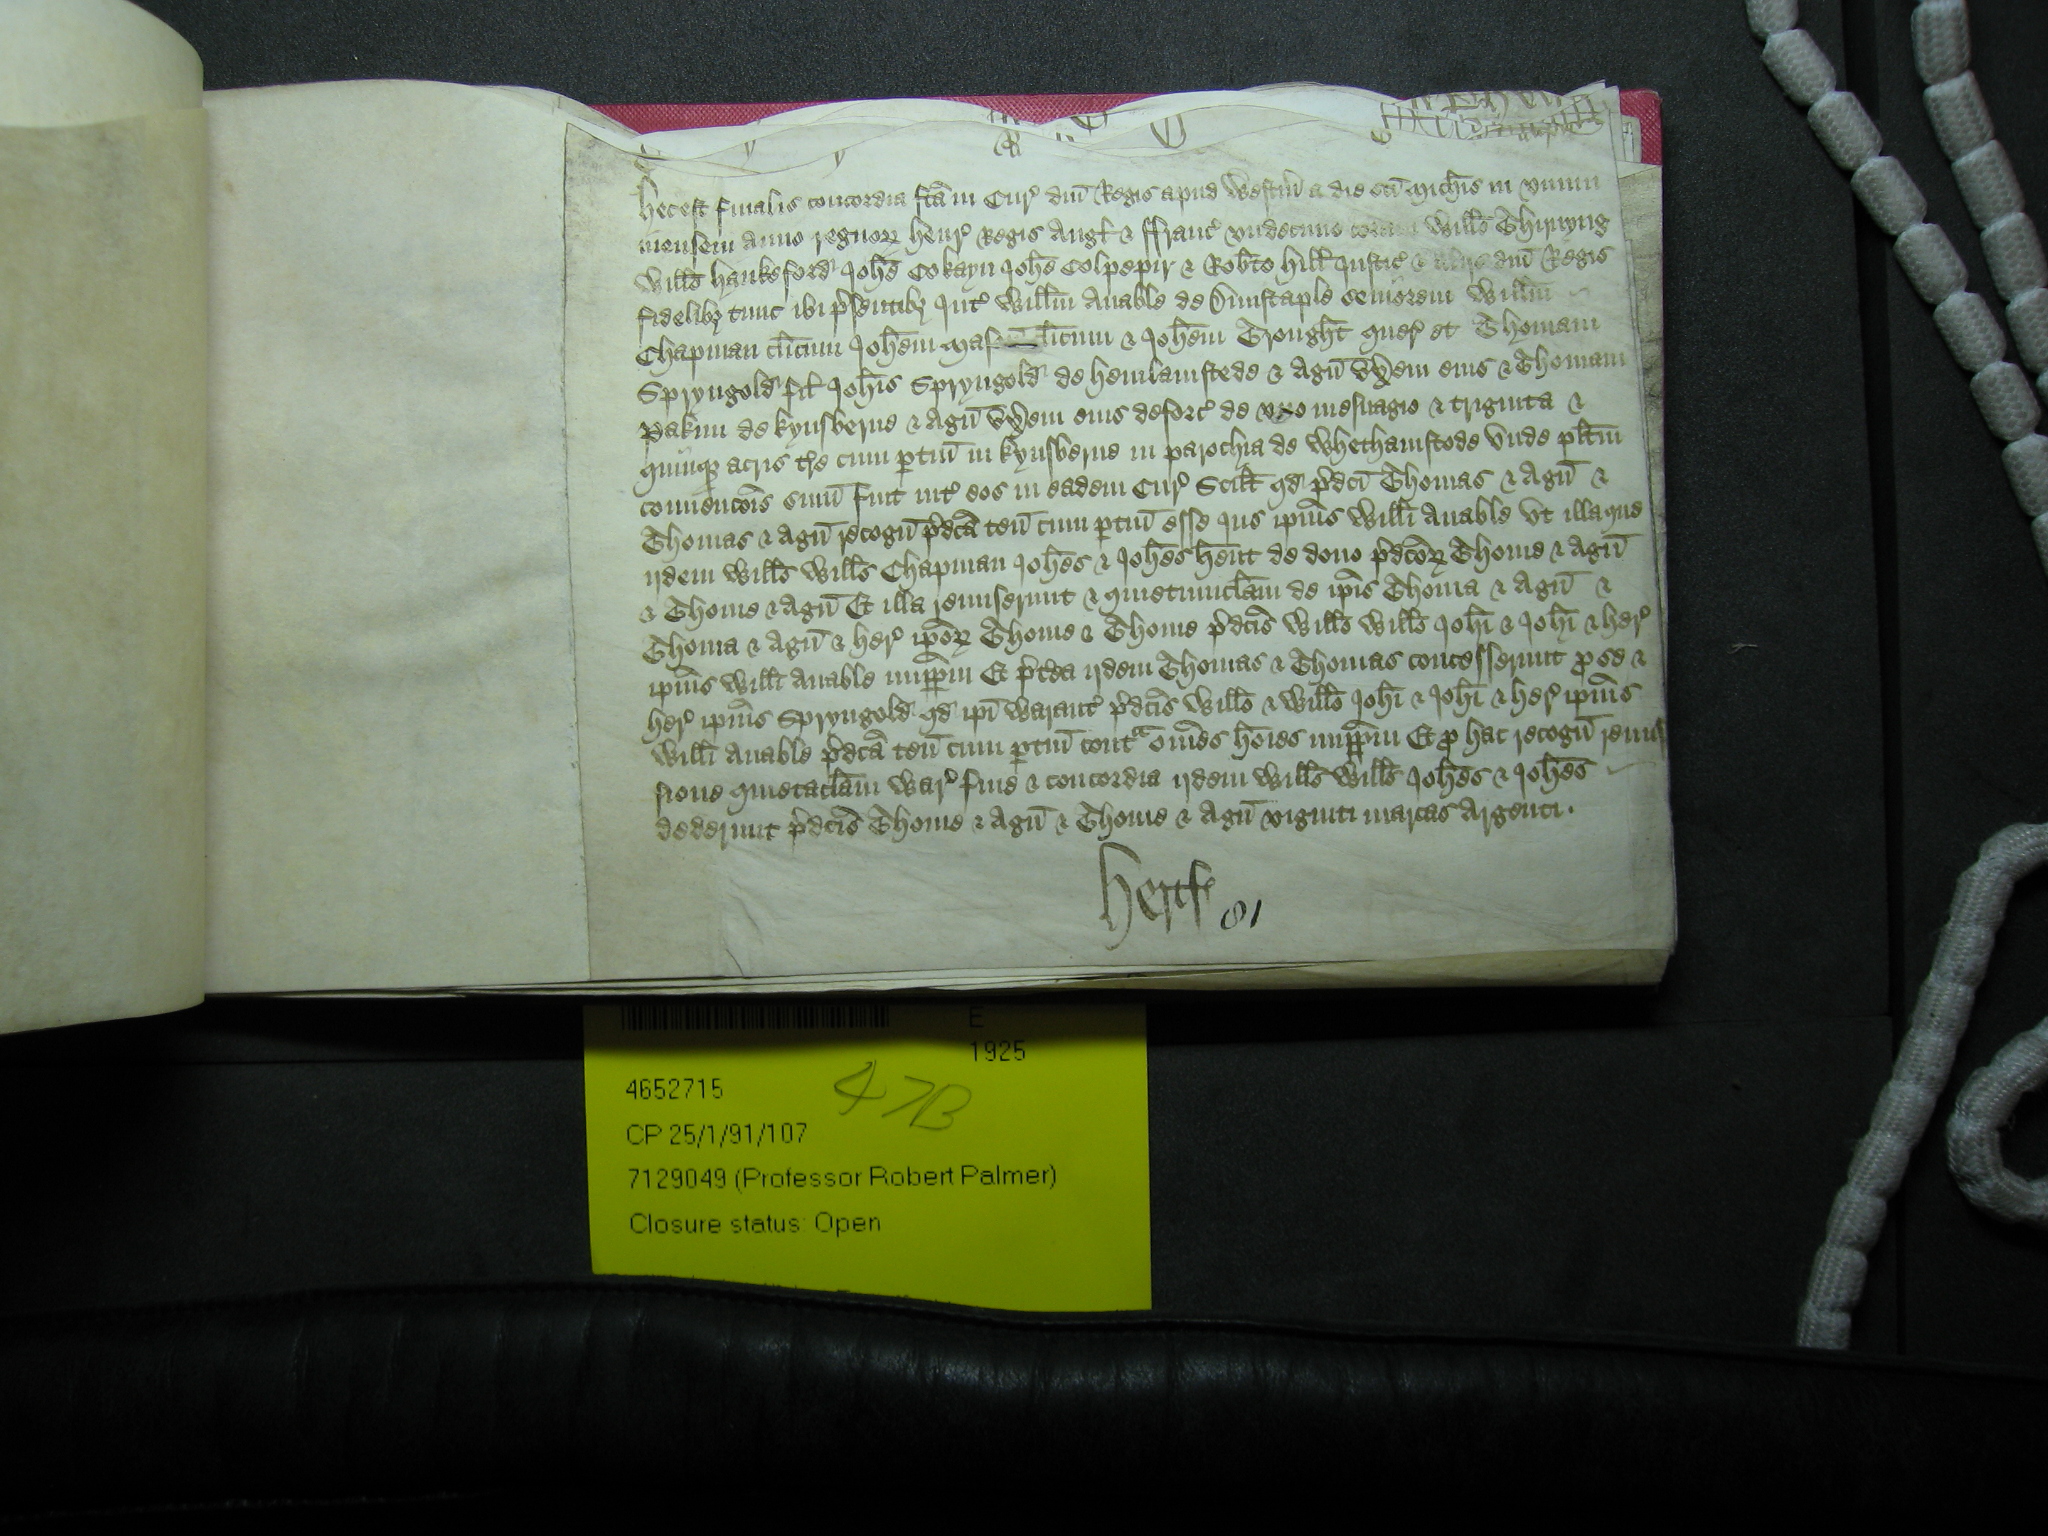 Hec est finalis concordia fca in Cur dni Regis apud Westm a die sci Michis in unum
mensem anno regnor Henr Regis Angl & Franc undecimo coram Willo Thirnyng
Willo Hankeford Johe Cokayn Johe Colpepir & Robto Hill Justic & aliis dni Regis
fidelibz tunc ibi psentibz Int Willm Anable de Dunstaple seniorem Willm
Chapman clicum Johem clicum & Johem Trought quer et Thomam
Spryngold fil Johis Spryngold de Hemlamstede & Agn uxem eius & Thomam
Pakun de Kynsberne & Agn uxem eius deforc de uno mesuagio & triginta &
quinqz acris tre cum ptin in Kynsberne in parochia de Whethamstede Unde pltm
convencois sum fuit int eos in eadem Cur Scilt qd pdci Thomas & Agn &
Thomas & Agn recogn pdca ten cum ptin esse Jus ipius Willi Anable Ut illa que
iidem Wills Wills Chapman Johes & Johes hent de dono pdcor Thome & Agn
& Thome & Agn Et illa remiserunt & quietumclam de ipis Thoma & Agn &
Thoma & Agn & her ipor Thome & Thome pdcis Willo Willo Johi & Johi & her
ipius Willi Anable imppm Et ptea iidem Thomas & Thomas concesserunt p se &
her ipius Spryngold qd ipi Warant pdcis Willo & Willo Johi & Johi & her ipius
Willi Anable pdca ten cum ptin contra omes hoies imppm Et p hac recogn remis
sione quietaclam War fine & concordia iidem Wills Wills Johes & Johes
dederunt pdcis Thome & Agn & Thome & Agn viginti marcas Argenti.
Hertf 81
E
1925
4652715
47B
CP 25/1/91/107
7129049 (Professor Robert Palmer)
Closure status: Open